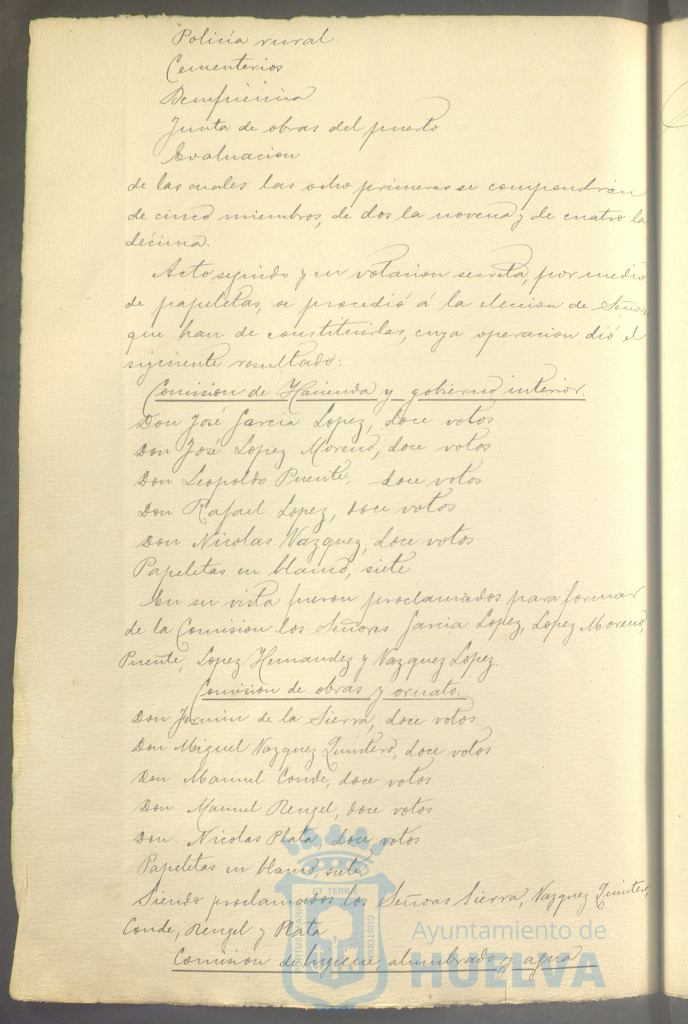 Policía rural
Cementerios
Beneficencia
Junta de obras del puerto
Evaluacion
de las cuales las ocho primeras se compondrán
de cinco miembros, de dos la novena y de cuatro la
décima.
Acto seguido y en votacion secreta, por medio
de papeletas, se procedió á la eleccion de Señores
que han de constituirlas, cuya operacion dió el
siguiente resultado:
Comision de Hacienda y gobierno interior.
Don José Garcia Lopez, doce votos
Don José Lopez Moreno, doce votos
Don Leopoldo Puente, doce votos
Don Rafael Lopez, doce votos
Don Nicolas Vazquez, doce votos
Papeletas en blanco, siete
En su vista fueron proclamados para formar
de la Comision los Señores Garcia Lopez, Lopez Moreno,
Puente, Lopez Hernandez y Vazquez Lopez.
Comision de obras y ornato.
Don de la Sierra, doce votos
Don Miguel Vazquez Quintero, doce votos
Don Manuel Conde, doce votos
Don Manuel Rengel, doce votos
Don Nicolas Plata, doce votos
Papeletas en blanco, siete
Siendo proclamados los Señores Sierra, Vazquez Quintero,
Conde, Rengel y Plata
Comision de higiene, alumbrado y agua
ET TERRÆ
PORTUS MARIS
CUSTODIA
Ayuntamiento de
HUELVA